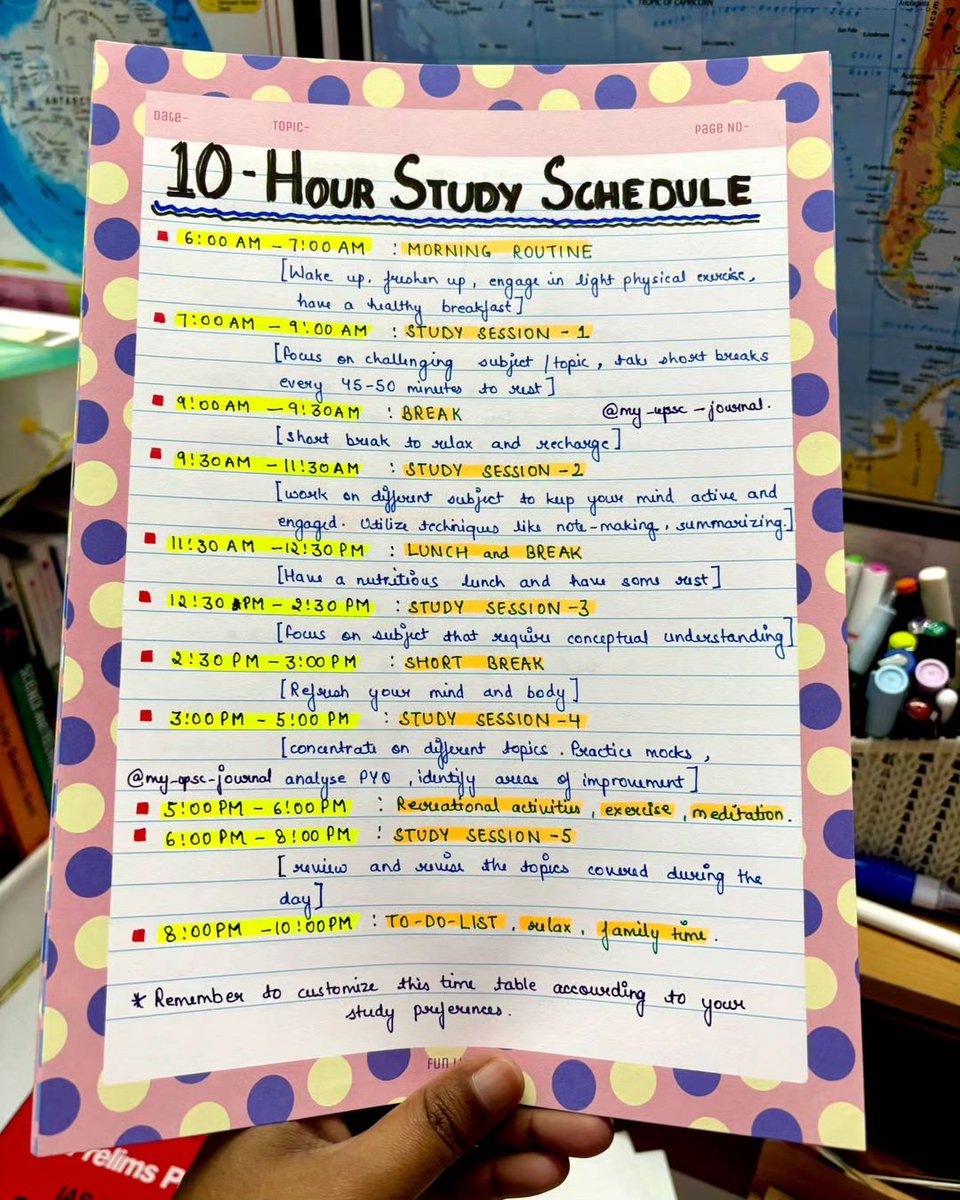 TROPIC OF CAPRICORN
Andes
Date-
TOPIC-
PAGE NO-
10-HOUR STUDY SCHEDULE
6:00 AM – 7:00 AM : MORNING ROUTINE
[Wake up, freshen up, engage in light physical exercise,
have a healthy breakfast]
7:00 AM – 9:00 AM : STUDY SESSION - 1
[focus on challenging subject/topic, take short breaks
every 45-50 minutes to rest]
9:00 AM – 9:30AM : BREAK
@my_upsc_journal.
[short break to relax and recharge]
9:30AM – 11:30AM : STUDY SESSION -2
[work on different subject to keep your mind active and
engaged. Utilize techniques like note-making, summarizing.]
11:30 AM –12:30 PM : LUNCH and BREAK
[Have a nutritious lunch and have some rest]
12:30 PM – 2:30 PM : STUDY SESSION -3
[focus on subject that require conceptual understanding]
2:30 PM – 3:00 PM : SHORT BREAK
[Refresh your mind and body]
3:00 PM – 5:00 PM : STUDY SESSION -4
[concentrate on different topics. Practice mocks,
@my_upsc_journal analyse PYQ, identify areas of improvement]
5:00 PM – 6:00 PM : Recreational activities, exercise, meditation.
6:00 PM – 8:00 PM : STUDY SESSION -5
[review and revise the topics covered during the
day]
8:00PM –10:00PM : TO-DO-LIST, relax, family time.
* Remember to customize this time table accourding to your
study preferences.
FUN
Prelims P
IAS